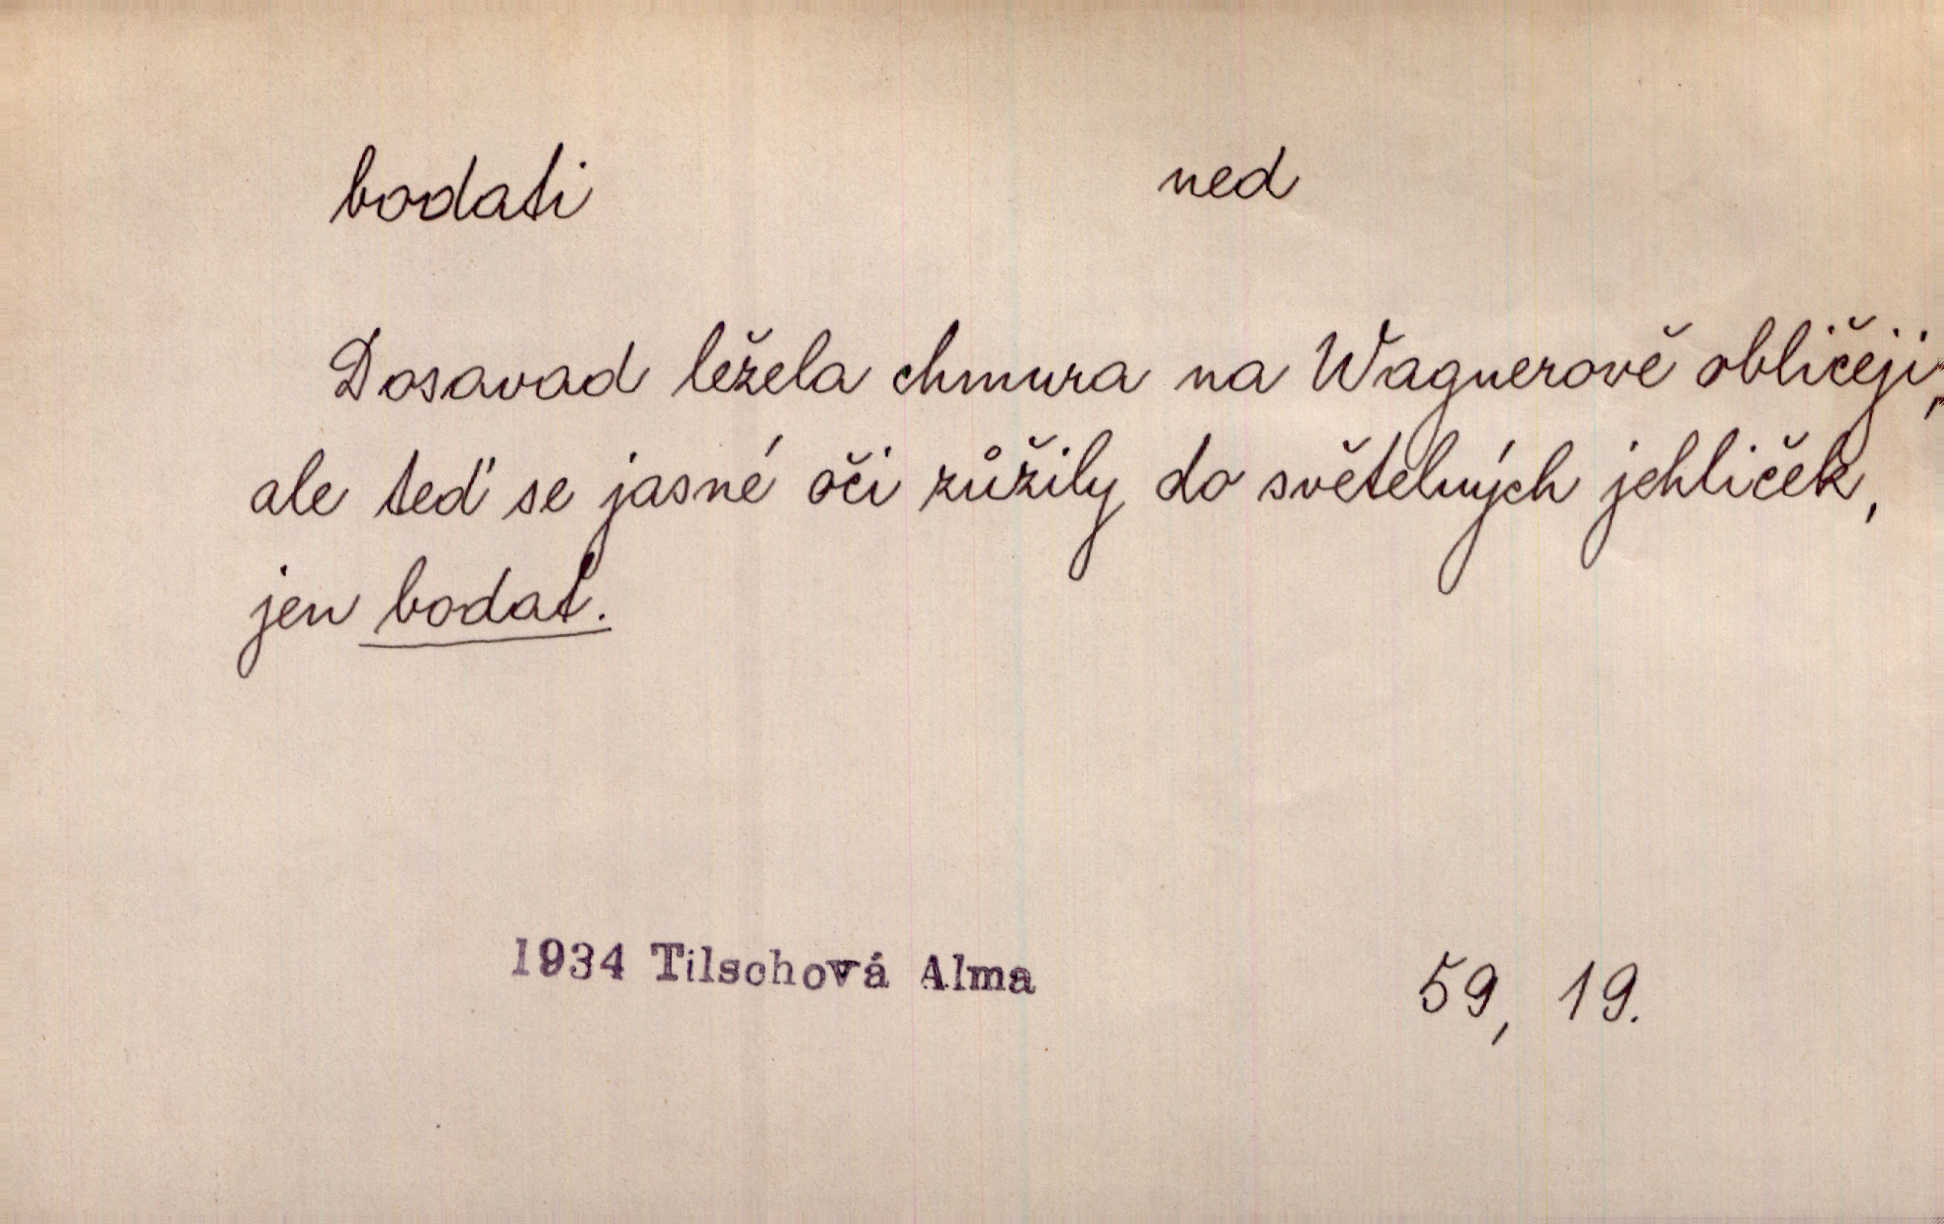 bodati ned
Dosavad ležela chmura na Wagnerově obličeji,
ale teď se jasné oči zúžily do světelných jehliček,
jen bodat.
1934 Tilschová Alma 59, 19.